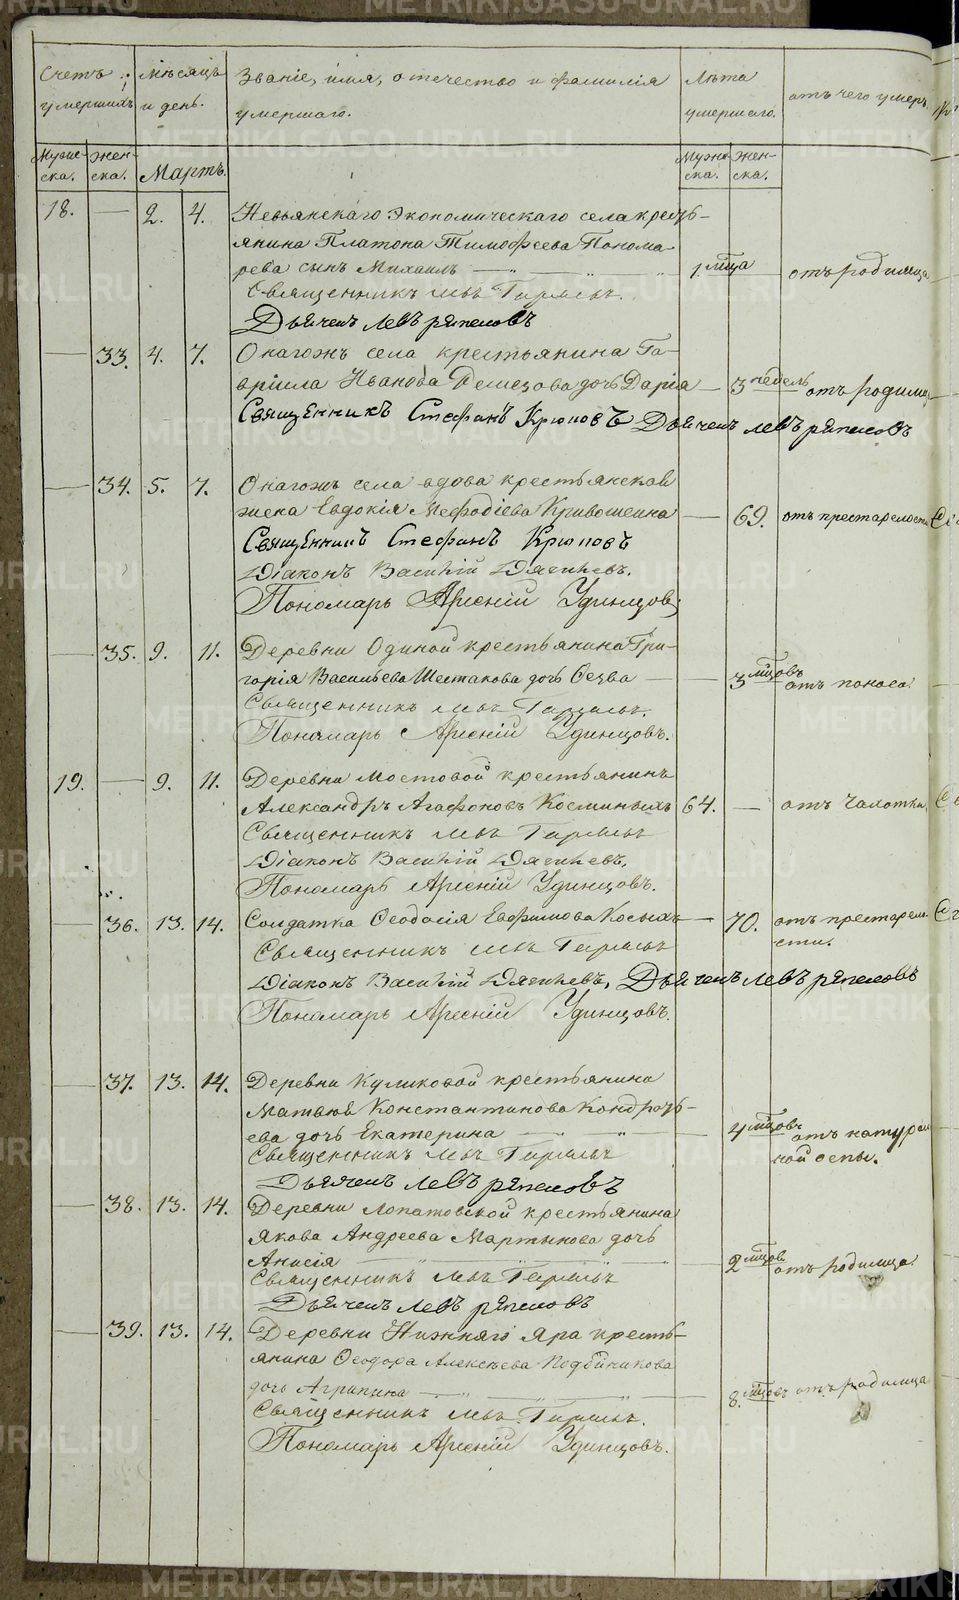 Счетъ умершихъ.
Мѣсяцъ и день.
Званіе, имя, отечество и фамилія умершаго.
Лѣта умершаго.
отъ чего умеръ.
Мужеска. Женска. Мартъ. Мужеска. Женска.
18. — 2. 4. Невьянскаго Экономическаго села кресть-
янина Платона Тимофеева Понома-
рева сынъ Михаилъ — 1 мца отъ родимца
Священникъ Левъ
Дьячекъ Левъ Ряпосовъ
— 33. 4. 7. Онагожъ села крестьянина Га-
вріила Иванова дочь Дарія — 3 недель отъ родимца
Священникъ Стефанъ Крюковъ Дьячекъ Левъ Ряпосовъ
— 34. 5. 7. Онагожъ села вдова крестьянская
жена Евдокія Мефодіева Кривошеина — 69. отъ престарелости
Священникъ Стефанъ Крюковъ
Діаконъ Василій Дягилевъ.
Пономарь Арсеній Удинцовъ
— 35. 9. 11. Деревни Одиной крестьянина Гри-
горія Васильева Шестакова дочь — 3 мцовъ отъ поноса.
Священникъ Левъ
Пономарь Арсеній Удинцовъ.
19. — 9. 11. Деревни Мостовой крестьянинъ
Александръ Агафоновъ Косминыхъ 64. — отъ чахотки
Священникъ Левъ
Діаконъ Василій Дягилевъ.
Пономарь Арсеній Удинцовъ.
— 36. 13. 14. Солдатка Ѳеодосія Евфимова Косыхъ — 70. отъ престарело-
сти.
Священникъ Левъ
Діаконъ Василій Дягилевъ. Дьячекъ Левъ Ряпосовъ
Пономарь Арсеній Удинцовъ.
— 37. 13. 14. Деревни Куликовой крестьянина
Матвѣя Константинова Кондрать-
ева дочь Екатерина — 4 мцовъ отъ натураль-
ной оспы.
Священникъ Левъ
Дьячекъ Левъ Ряпосовъ
— 38. 13. 14. Деревни Лопатовской крестьянина
Якова Андреева Мартынова дочь
Анисія — 2 мцов отъ родимца.
Священникъ Левъ
Дьячекъ Левъ Ряпосовъ
— 39. 13. 14. Деревни Нижняго Яра кресть-
янина Ѳеодора Алексѣева Подойникова
дочь Агрипина — 8. мцовъ отъ родимца
Священникъ Левъ
Пономарь Арсеній Удинцовъ.
METRIKI.GASO-URAL.RU